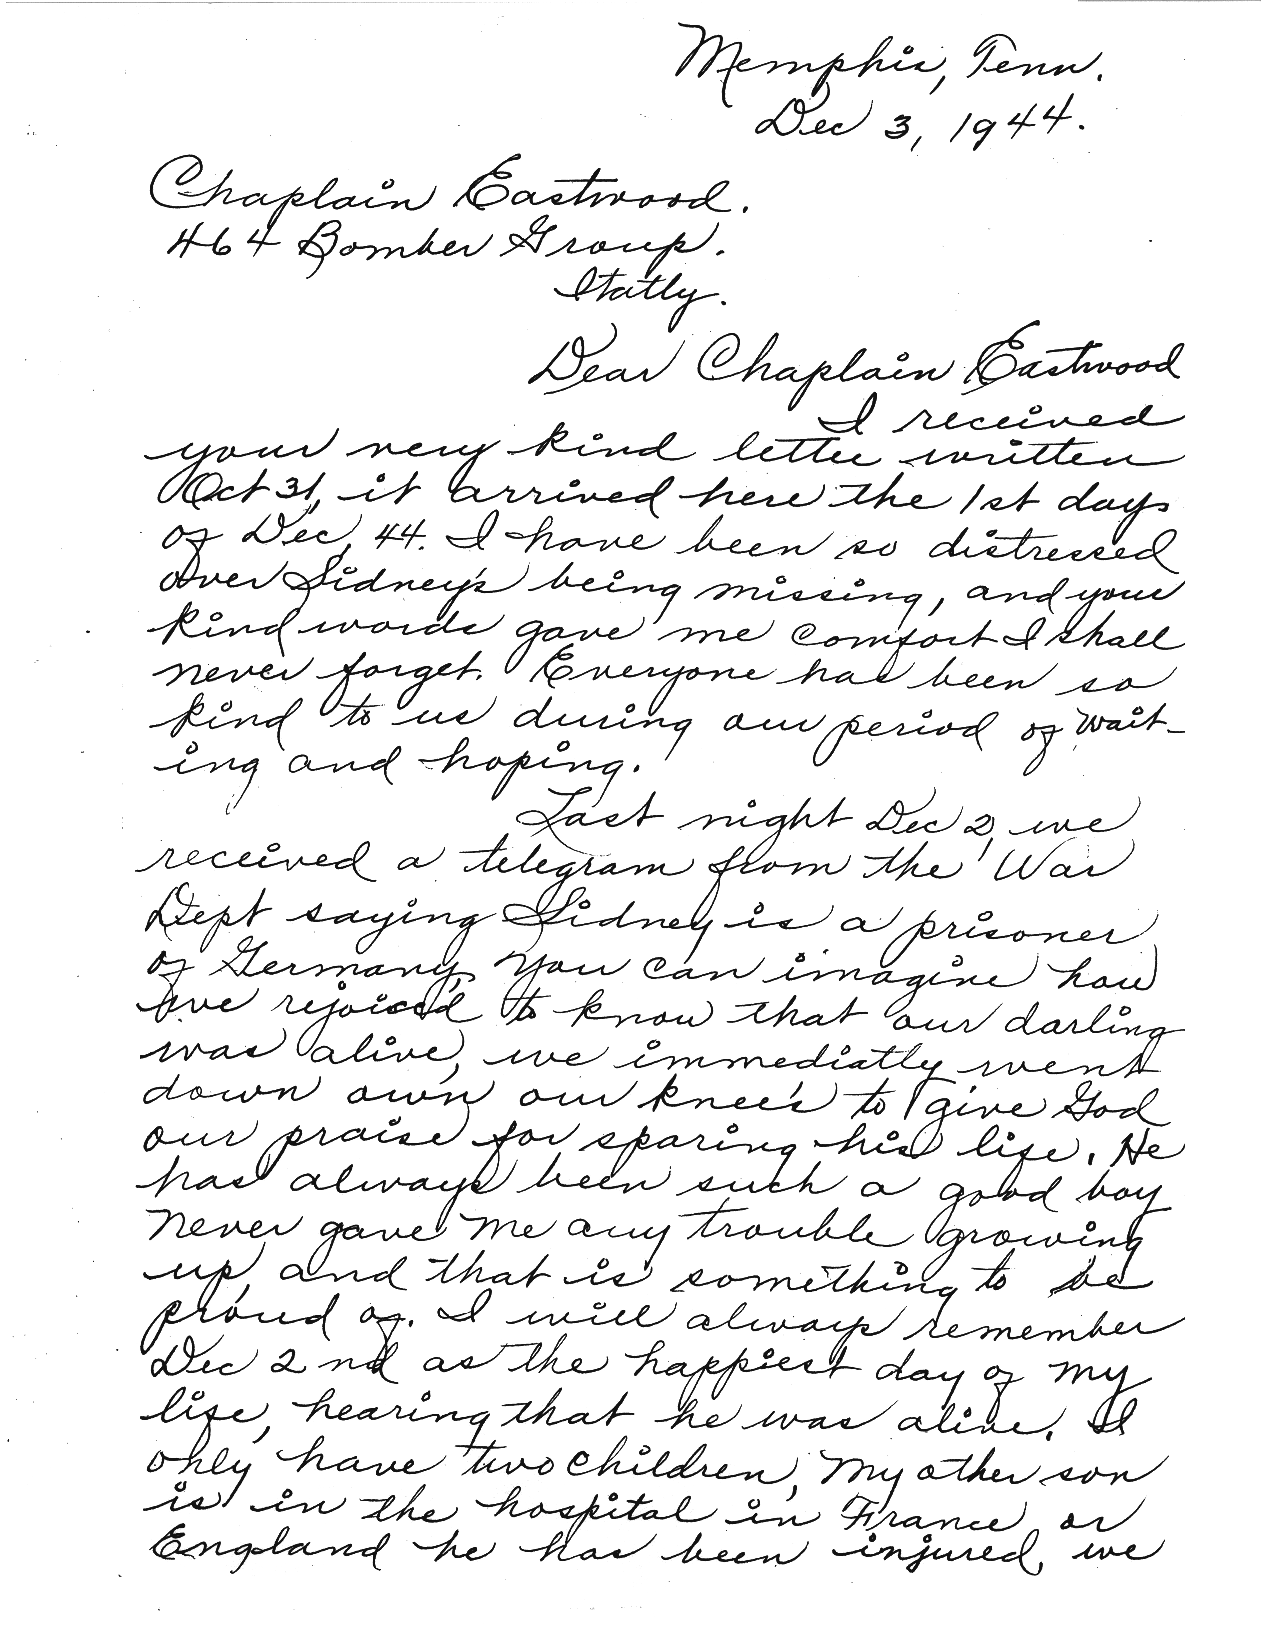 Memphis, Tenn.
Dec 3, 1944.
Chaplain Eastwood.
464 Bomber Group.
Itatly.
Dear Chaplain Eastwood
I received
your very kind letter written
Oct 31, it arrived here the 1st days
of Dec, 44. I have been so distressed
over Sidney's being missing, and your
kind words gave me comfort I shall
never forget. Everyone has been so
kind to us during our period of wait-
ing and hoping.
Last night Dec 2, we
received a telegram from the War
Dept saying Sidney is a prisoner
of Germany, You can imagine how
we rejoiced to know that our darling
was alive, we immediatly went
down own our knee's to give God
our praise for sparing his life. He
has always been such a good boy
never gave me any trouble growing
up, and that is something to be
proud of. I will always remember
Dec 2nd as the happiest day of my
life, hearing that he was alive. I
only have two children, my other son
is in the hospital in France or
England he has been injured, we